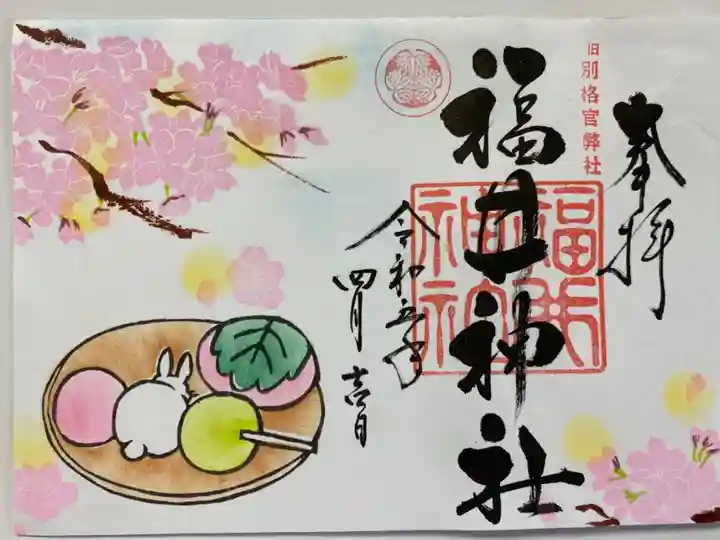 奉拝
旧別格官幣社
福井神社
福井神社
令和五年
四月吉日